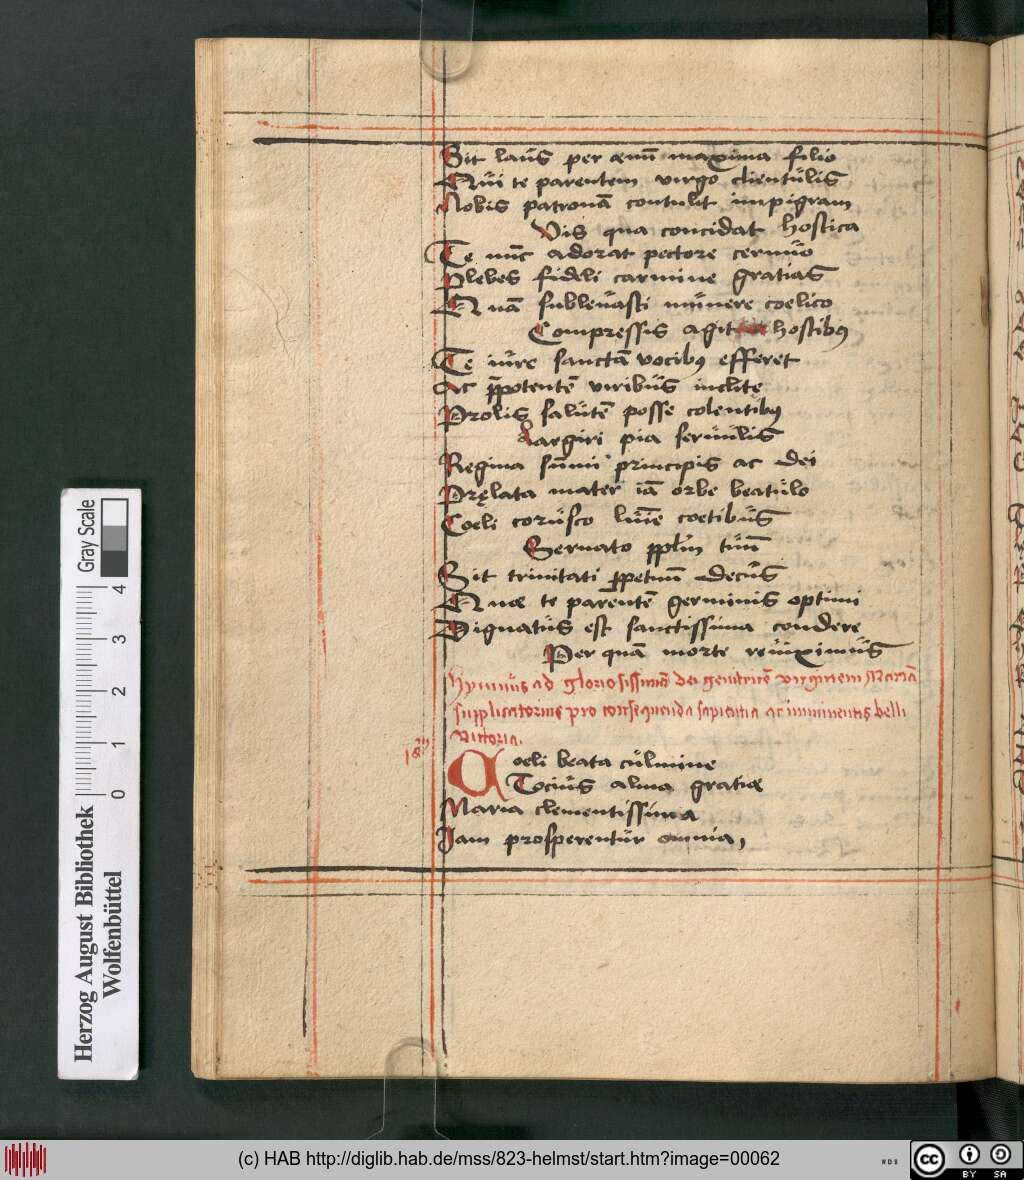 Sit laus per æuū maxima filio
Qui te parentem virgo clientulis
Nobis patronā contulit impigram
Vis qua concidat hostica
Te nūc adorat pectore cernuo
Plebes fideli carmine gratias
Quā subleuasti munere coelico
Compressis agit hostibꝫ
Te iure sanctā vocibꝫ efferet
Ac p̄potentē viribus inclite
Prolis salutē posse colentibꝫ
Largiri pia seruulis
Regina sūmi principis ac dei
Pręlata mater iā orbe beatulo
Coeli corusco luīe coetibus
Seruato pplm̄ tuū
Sit trinitati ꝑpetuū decus
Quæ te parentē germinis optimi
Dignatus est sanctissima condere
Per quā morte reuiximus
Hymnus ad gloriosissimā dei genitricē virginem Mariā
supplicatorius pro consequenda sapientia ac imminentis belli
victoria.
Coeli beata culmine
Tocius alma gratiæ
Maria clementissima
Iam prosperentur omnia,
Herzog August Bibliothek
Wolfenbüttel
Gray Scale
0 1 2 3 4
(c) HAB http://diglib.hab.de/mss/823-helmst/start.htm?image=00062
cc BY SA